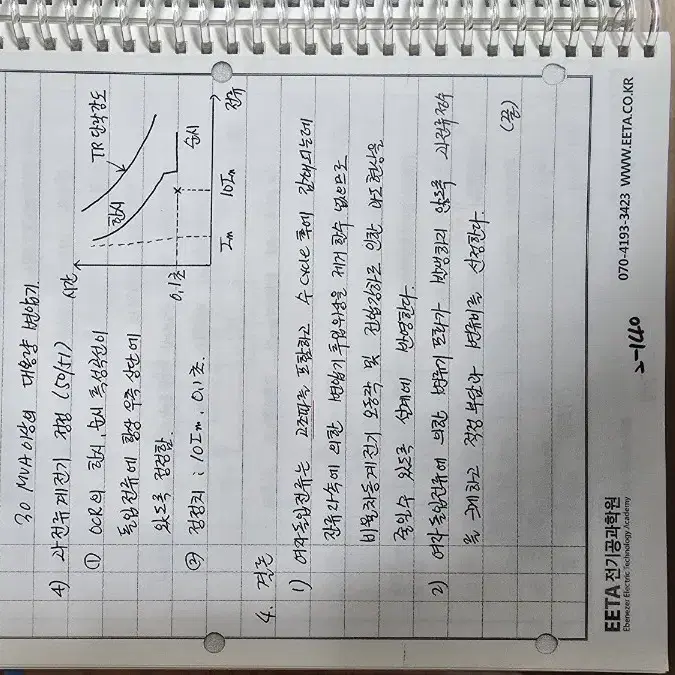 30 MVA 이상의 대용량 변압기
4) 과전류계전기 정정 (50/51)
① OCR의 한시, 순시 특성곡선이
돌입전류에 항상 우측 상단에
있도록 정정함.
② 정정치 : 10In, 0.1초.
시간
TR 단락강도
한시
순시
0.1초
In
10In
전류
4. 결론
1) 여자돌입전류는 고조파를 포함하고 수 cycle 후에 감쇄되는데
잔류자속에 의한 변압기 투입위상을 제거 할 수 없으므로
비율차동계전기 오동작 및 전압강하로 인한 마모현상을
줄일 수 있도록 설계에 반영한다.
2) 여자돌입전류에 의한 변류기 포화가 발생하지 않도록 과전류정수
를 고려하고 적정 부담과 변류비를 선정한다.
(끝)
EETA 전기공과학원
Ebenezer Electric Technology Academy
2-140
070-4193-3423 WWW.EETA.CO.KR